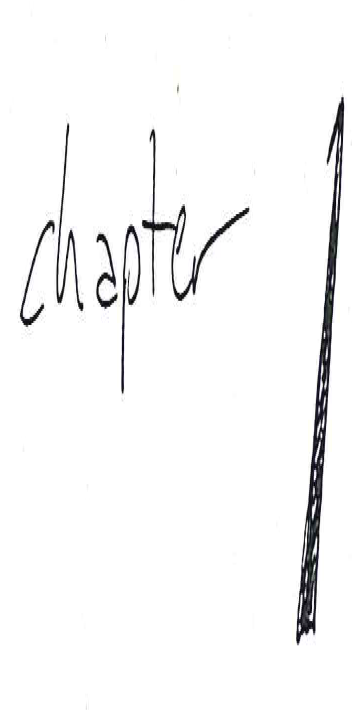 chapter 1